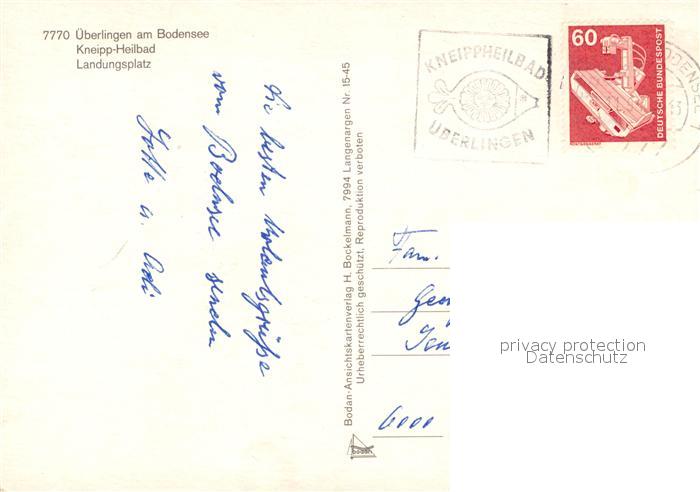 7770 Überlingen am Bodensee
Kneipp-Heilbad
Landungsplatz
Die besten Urlaubsgrüße
vom Bodensee senden
u. Adi
Bodan-Ansichtskartenverlag H. Bockelmann, 7994 Langenargen Nr. 15-45
Urheberrechtlich geschützt, Reproduktion verboten
bodan
KNEIPPHEILBAD
ÜBERLINGEN
60
DEUTSCHE BUNDESPOST
Fam.
6000
privacy protection
Datenschutz